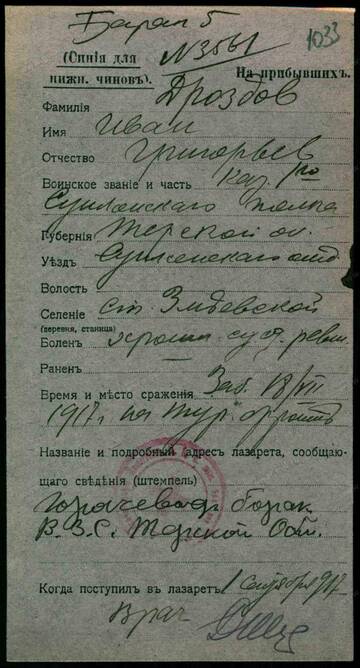 Барак 5
(Синія для нижн. чиновъ).
№3561
1033
На прибывшихъ.
Фамилія Дроздов
Имя Иван
Отчество Григорьев
Воинское званіе и часть Каз. 1го
Сунженскаго полка
Губернія Терской об.
Уѣздъ Сунженскаго отд.
Волость
Селеніе ст.
(деревня, станица)
Боленъ хронич. суст. ревм.
Раненъ
Время и мѣсто сраженія Заб. 18/VII
1917 г. на Тур. фронтѣ
Названіе и подробный адресъ лазарета, сообщаю-
щаго свѣдѣнія (штемпель)
Горячевод. барак
В.З.С. Терской Обл.
Когда поступилъ въ лазаретъ 1 сентября 917.
Врач